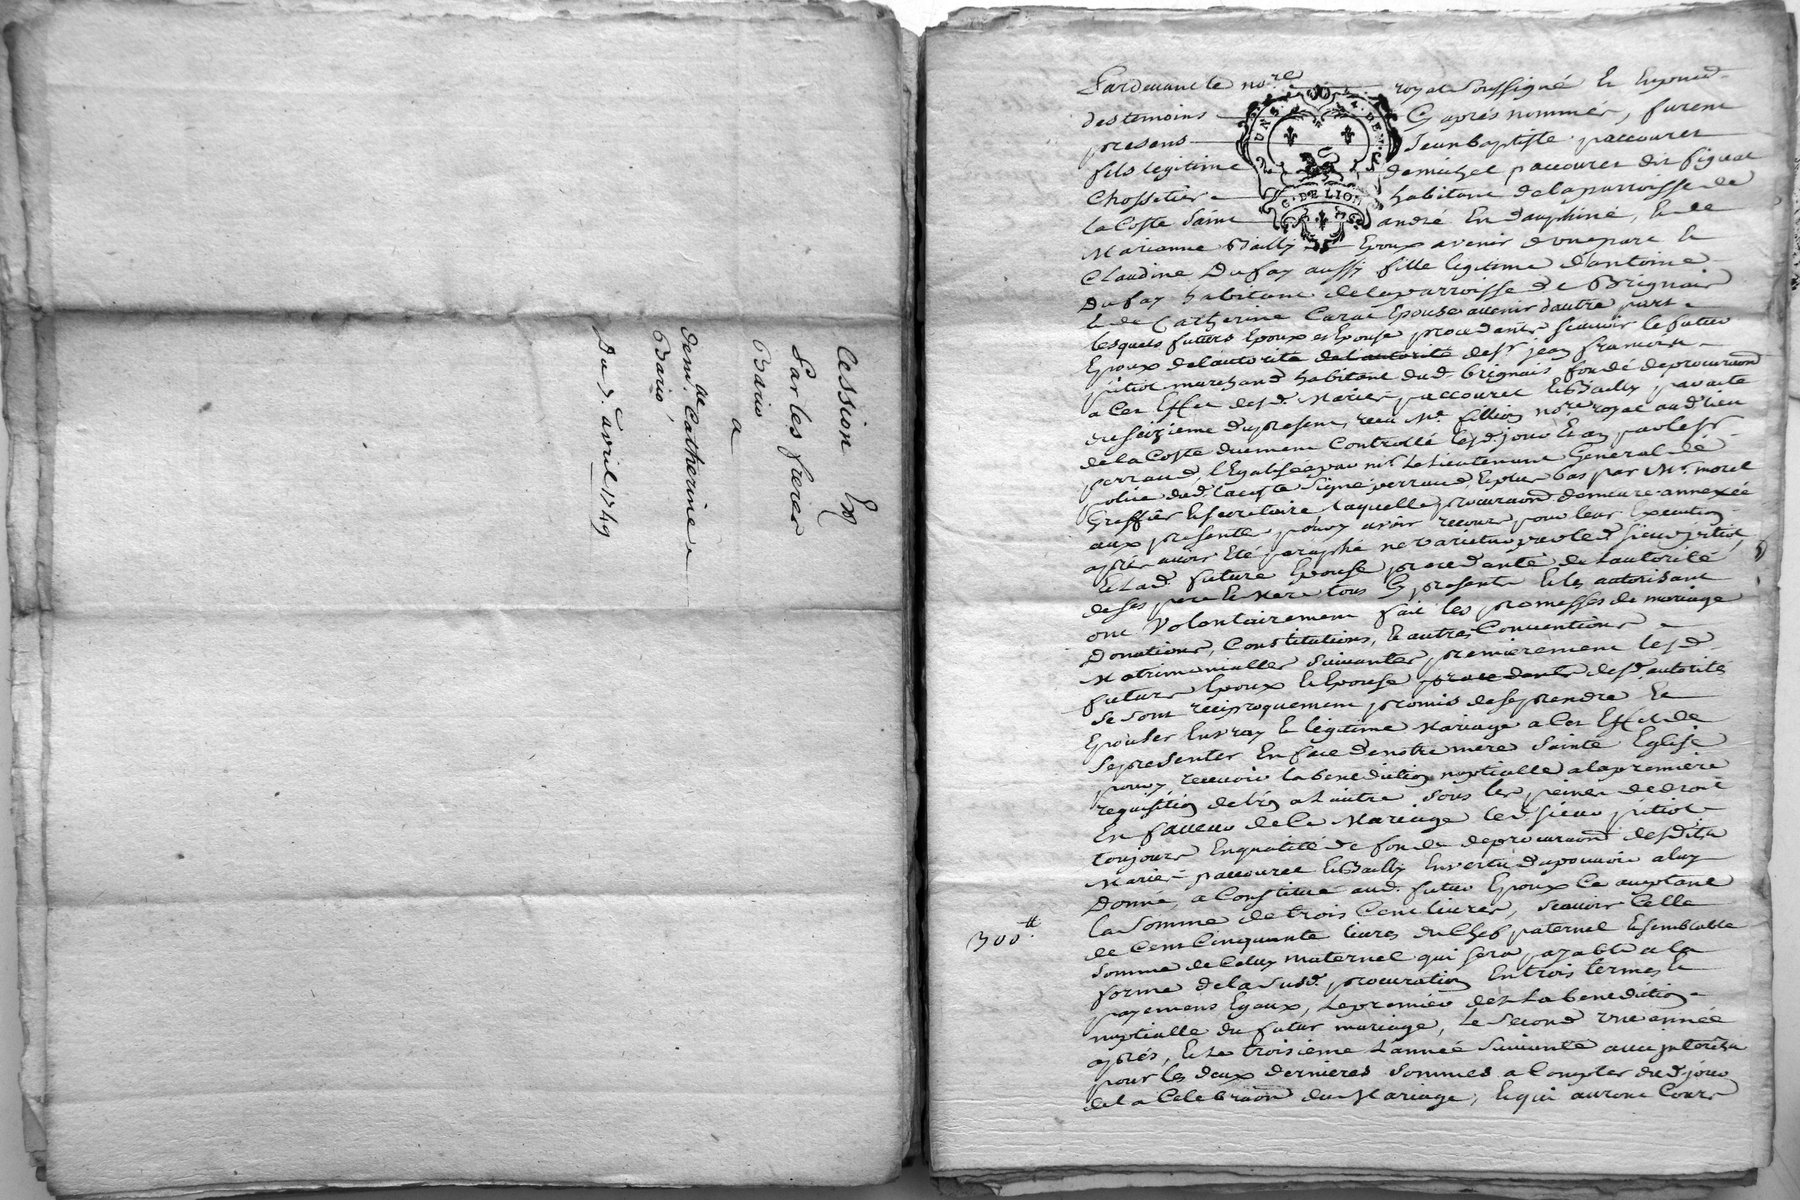 Cession
Par les freres
Bario
a
dem.lle Catherine
Bario,
Du 7. avril 1749
Pardevant le no.re royal soussigné et en presence
des temoins Cy aprés nommés, furent
presens Jean baptiste paccouret
fils legitime de michel paccouret dit figuet
Chossetier habitant de la parroisse de
la Coste Saint andré En dauphiné, et de
Marianne Bailly Epoux avenir d'une part et
Claudine Dufay aussy fille legitime d'antoine
Dufay habitant de la parroisse de Brignais
et de Catherine Carat Epouse avenir d'autre part
lesquels futurs Epoux et Epouse procedants sçavoir le futur
Epoux de l'autorité de l'autorité de s.r jean francois
pitiot marchand habitant dud. brignais fondé de procuraon
a Cet Effet desd. Mariés paccouret et Bailly, par acte
du seizieme du present, receu M.e fillion no.re royal aud. lieu
de la Coste duement Controllé lesd. jour et an par le s.r
perraud, legalisé par m.r Le Lieutenant General de
police dud. la coste signé perraud, et plus bas par M.r morel
Greffier et secretaire, laquelle procuraon demeure annexée
aux presente pour y avoir recours pour leur Execution
aprés avoir Eté paraphé ne varietur par led. sieur pitiot,
et lad. future Epouse procedante de l'autorité
de ses pere et Mere tous Cy presents et les autorisant
ont Volontairement fait les promesses de mariage
Donations, Constitutions, et autres Conventions
Matrimonialles suivantes, premierement lesd.
futurs Epoux et Epouse procedants desd. autorités
se sont reciproquement promis de se prendre et
Epouser En vray et legitime Mariage a Cet Effet de
se presenter En face de notre mere Sainte Eglise
pour y recevoir la benediction nuptialle a la premiere
requisition de l'un a l'autre sous les peines de droit
En faveur de Ce Mariage led. sieur pitiot
toujours En qualité de fondé de procuraon desdits
Mariés paccouret et Bailly En vertu du pouvoir a luy
Donné, a Constitué aud. futur Epoux Ce aceptant
la somme de trois Cent livres, sçavoir Celle
300.tt
de Cent Cinquante livres du Chef paternel et semblable
somme de Celuy maternel qui sera payable a la
forme de la susd. procuration En trois termes et
payemens Egaux, le premier des La benediction
nuptialle du futur mariage, Le Second une année
aprés, et Le troisieme L'année suivante avec interests
pour les deux dernieres sommes a Compter dud. jour
de la Celebraon du Mariage, et qui auront Cours